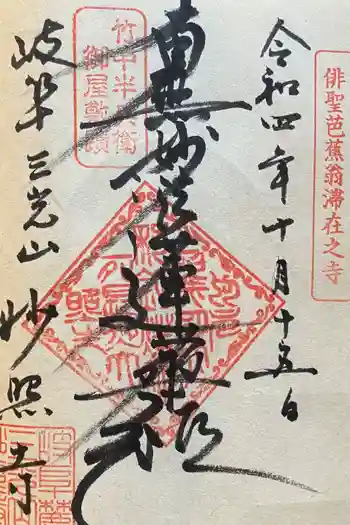 俳聖芭蕉翁滞在之寺
令和四年十月十五日
南無妙法蓮華経
竹中半兵衛
御屋敷跡
岐阜三光山妙照寺